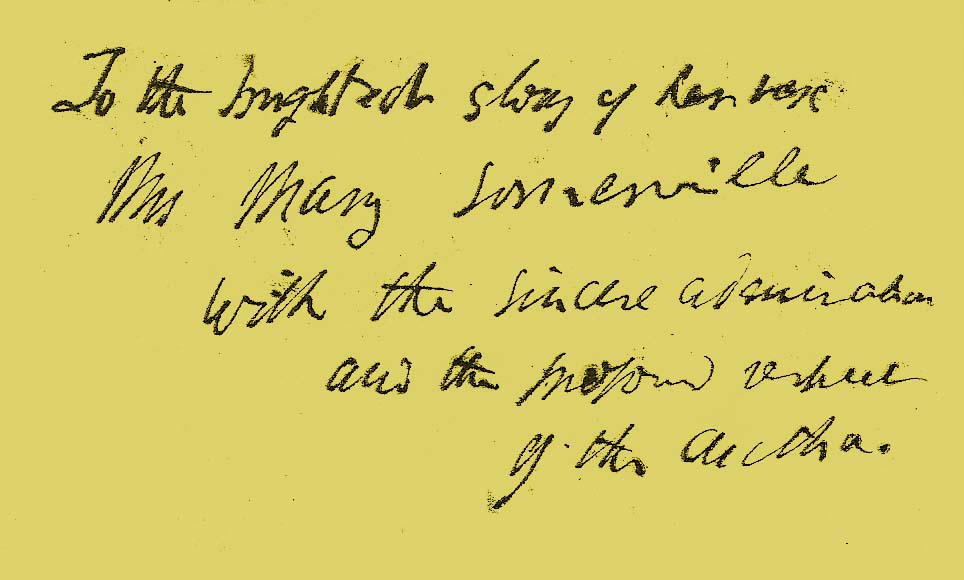 To the brightest glory of her sex
Mrs Mary Somerville
with the sincere admiration
and the profound respect
of the author.